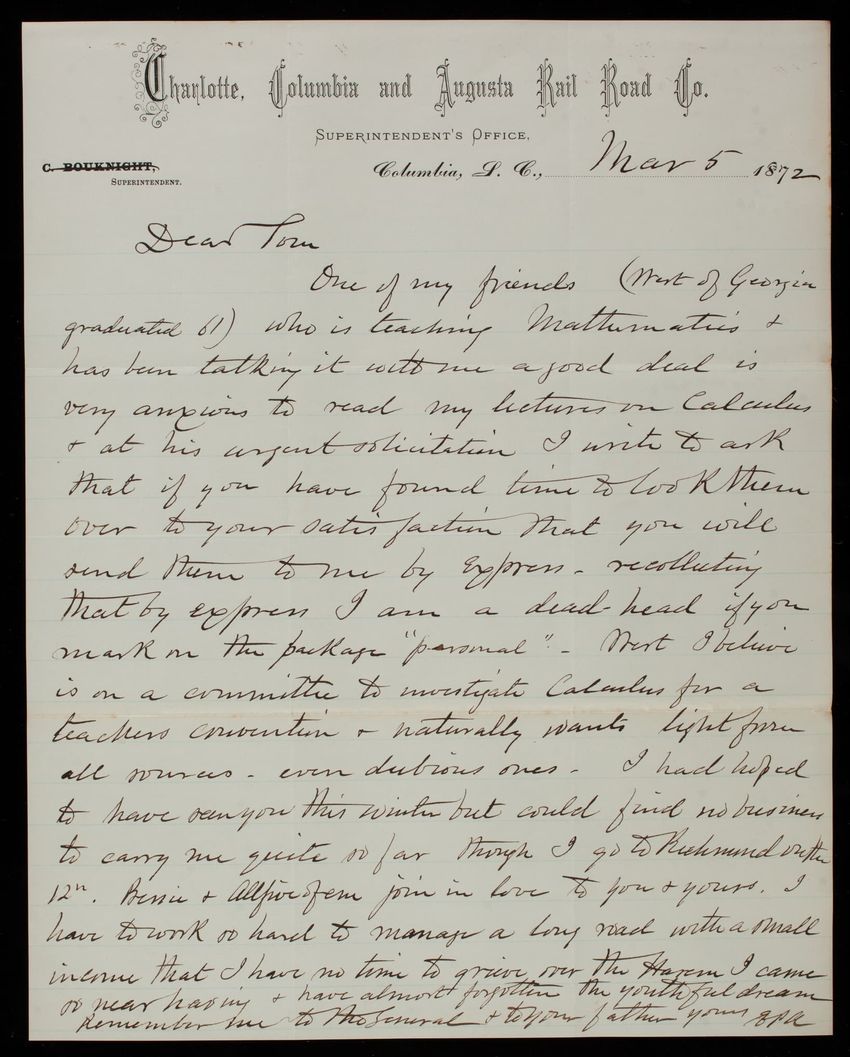 Charlotte, Columbia and Augusta Rail Road Co.
Superintendent's Office,
C. BOUKNIGHT,
Superintendent.
Columbia, S. C., Mar 5 1872
Dear Tom
One of my friends (West of Georgia
graduated 61) who is teaching Mathematics &
has been talking it with me a good deal is
very anxious to read my lectures on Calculus
& at his urgent solicitation I write to ask
that if you have found time to look them
over to your satisfaction that you will
send them to me by Express - recollecting
that by express I am a dead-head if you
mark on the package "personal". - West I believe
is on a committee to investigate Calculus for a
teachers convention & naturally wants light from
all sources - even dubious ones - I had hoped
to have seen you this winter but could find no business
to carry me quite so far though I go to Richmond on the
12th. Bessie & All five of em join in love to you & yours. I
have to work so hard to manage a long road with a small
income that I have no time to grieve over the Harem I came
so near having & have almost forgotten the youthful dream
Remember me to the General & to your father yours EPA